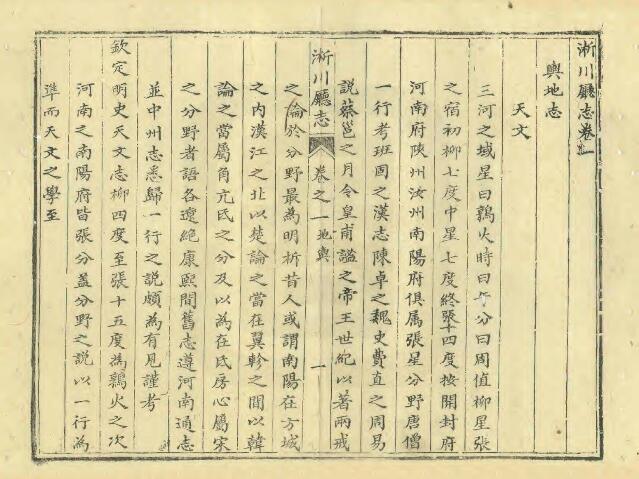 淅川廳志卷之一
輿地志
天文
三河之域星曰鶉火時曰午分曰周值柳星張
之宿初柳七度中星七度終張十四度按開封府
河南府陝州汝州南陽府俱屬張星分野唐僧
一行考班固之漢志陳卓之魏史費直之周易
說蔡邕之月令皇甫謐之帝王世紀以著兩戒
淅川廳志 卷之一 輿地 一
之論於分野最為明析昔人或謂南陽在方城
之內漢江之北以楚論之當在翼軫之間以韓
論之當屬角亢氐之分及以為在氐房心屬宋
之分野者語各遼絶康熙間舊志遵河南通志
並中州志悉歸一行之說頗為有見謹考
欽定明史天文志柳四度至張十五度為鶉火之次
河南之南陽府皆張分蓋分野之說以一行為
準而天文之學至